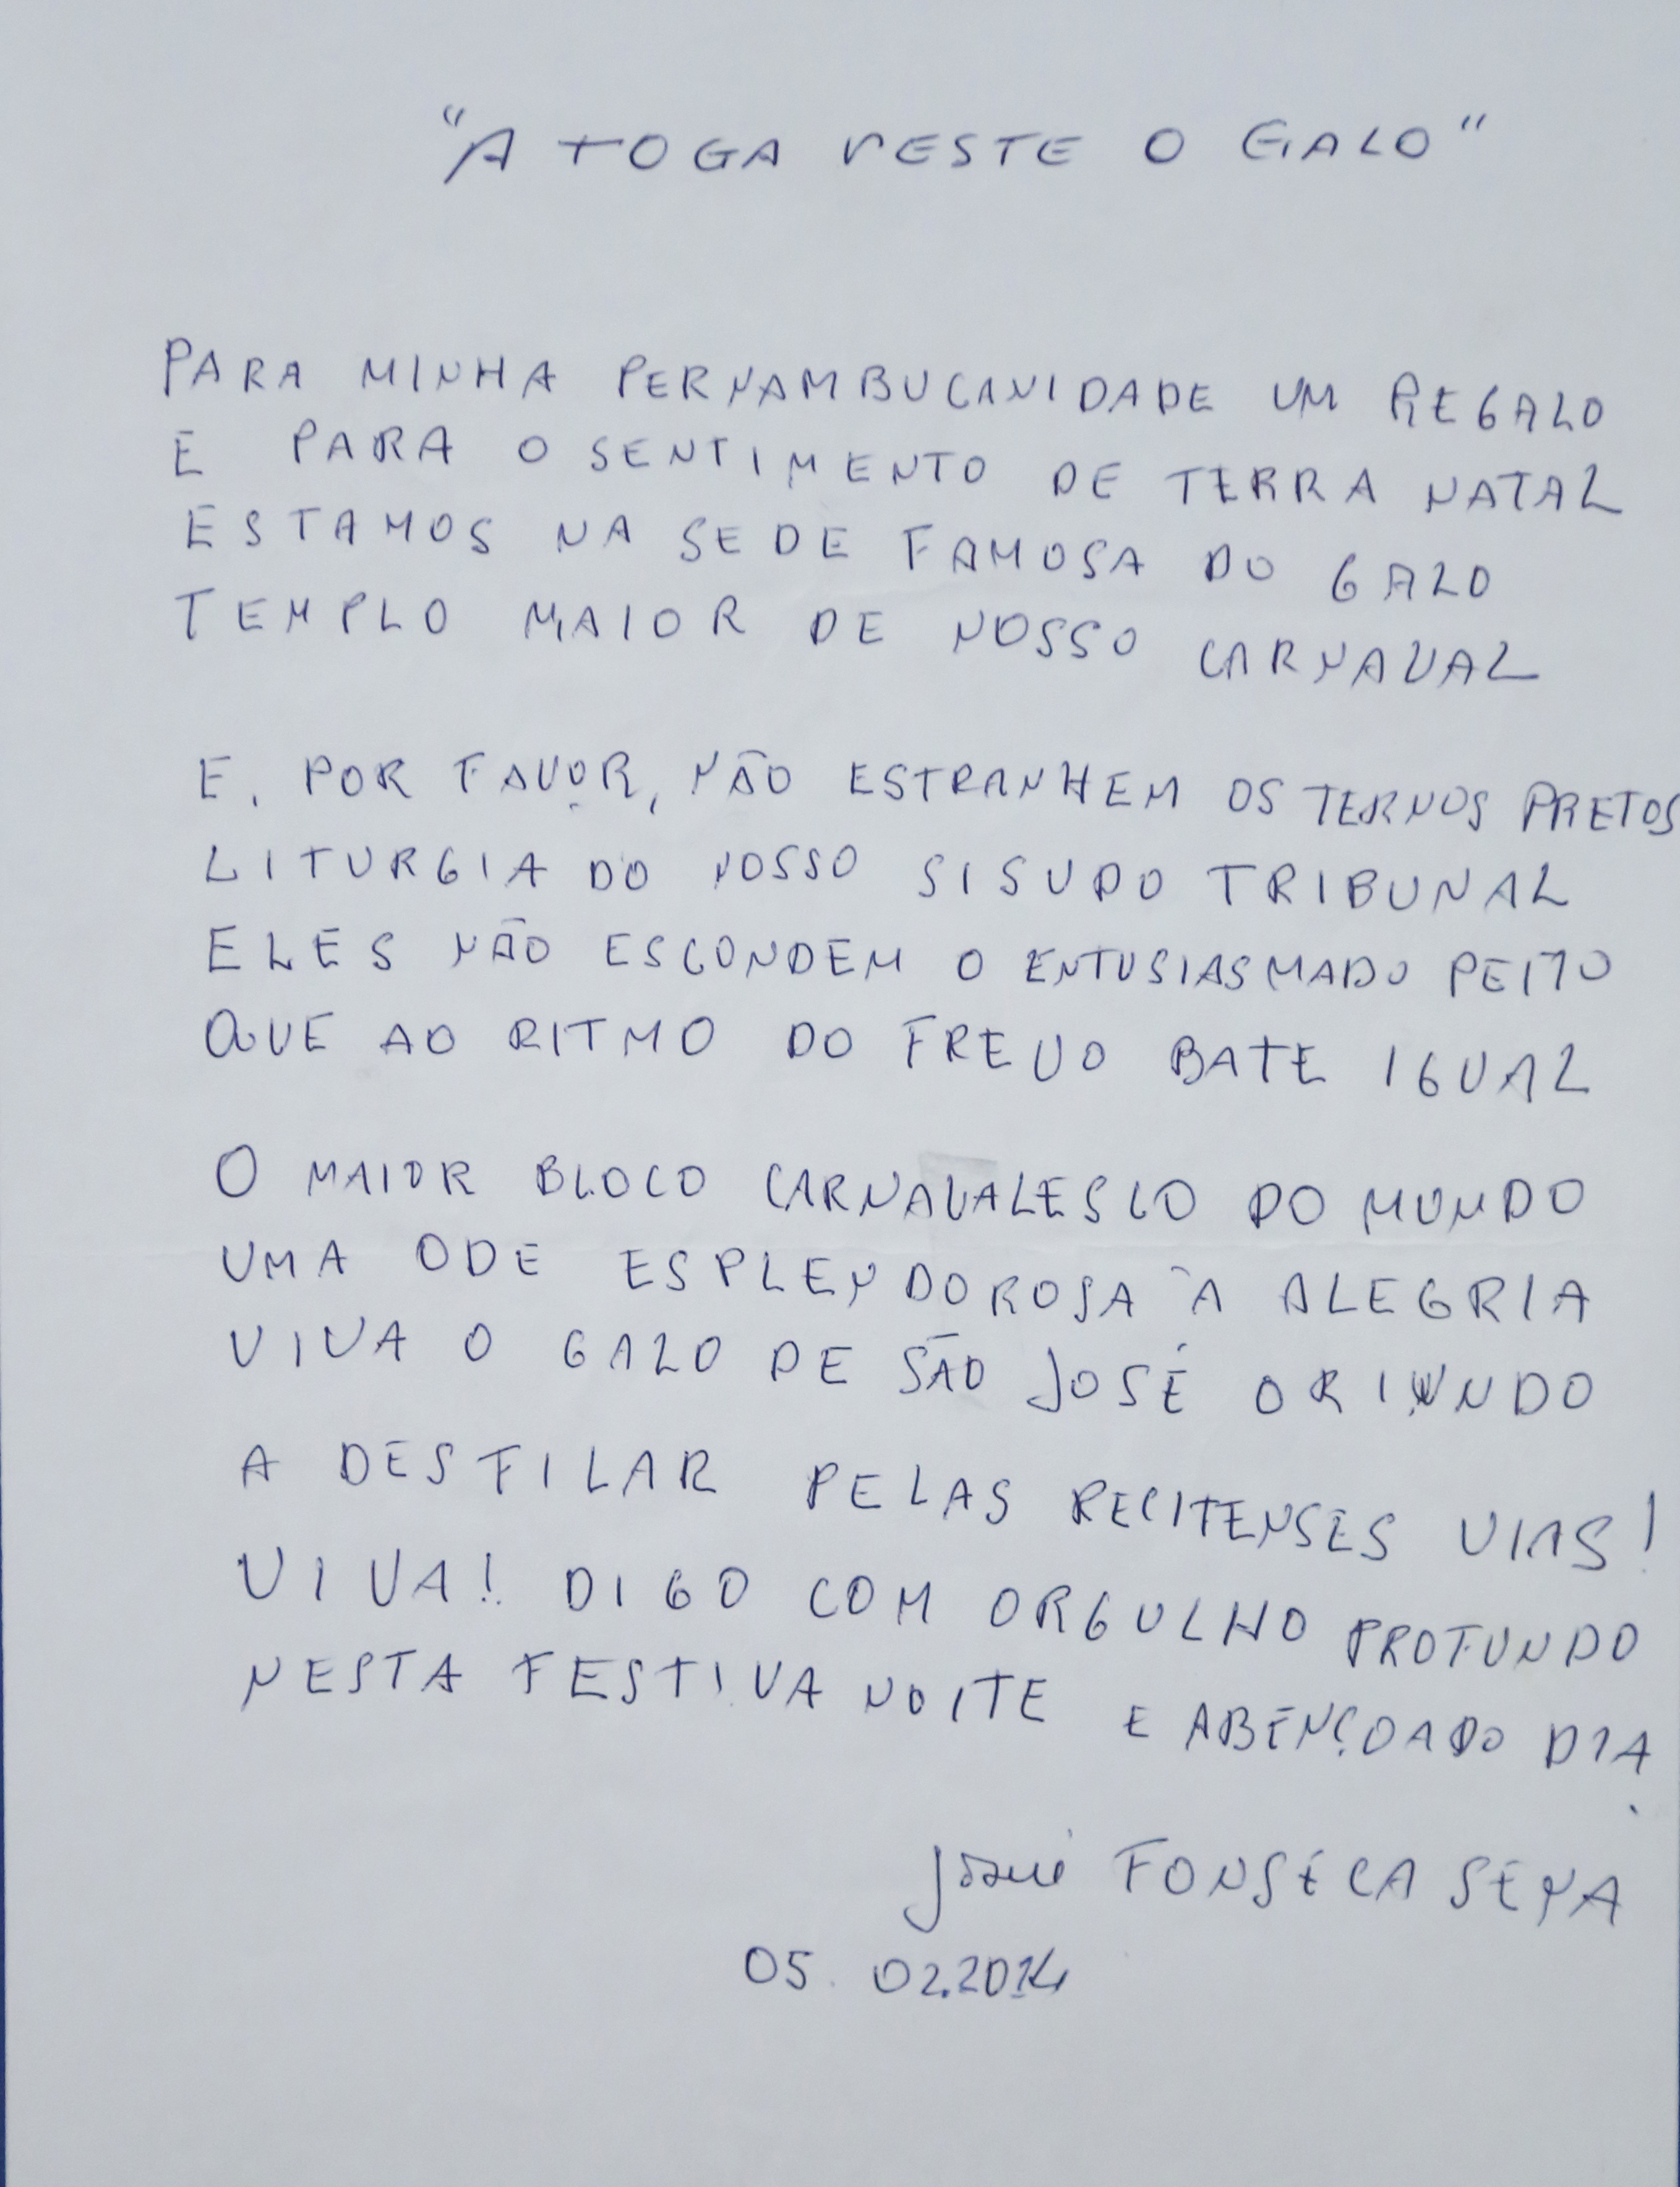 "A TOGA VESTE O GALO"
PARA MINHA PERNAMBUCANIDADE UM REGALO
E PARA O SENTIMENTO DE TERRA NATAL
ESTAMOS NA SEDE FAMOSA DO GALO
TEMPLO MAIOR DE NOSSO CARNAVAL
E, POR FAVOR, NÃO ESTRANHEM OS TERNOS PRETOS
LITURGIA DO NOSSO SISUDO TRIBUNAL
ELES NÃO ESCONDEM O ENTUSIASMADO PEITO
QUE AO RITMO DO FREVO BATE IGUAL
O MAIOR BLOCO CARNAVALESCO DO MUNDO
UMA ODE ESPLENDOROSA À ALEGRIA
VIVA O GALO DE SÃO JOSÉ ORIUNDO
A DESFILAR PELAS RECIFENSES VIAS!
VIVA! DIGO COM ORGULHO PROFUNDO
NESTA FESTIVA NOITE E ABENÇOADO DIA
FONSECA SENA
05.02.2014